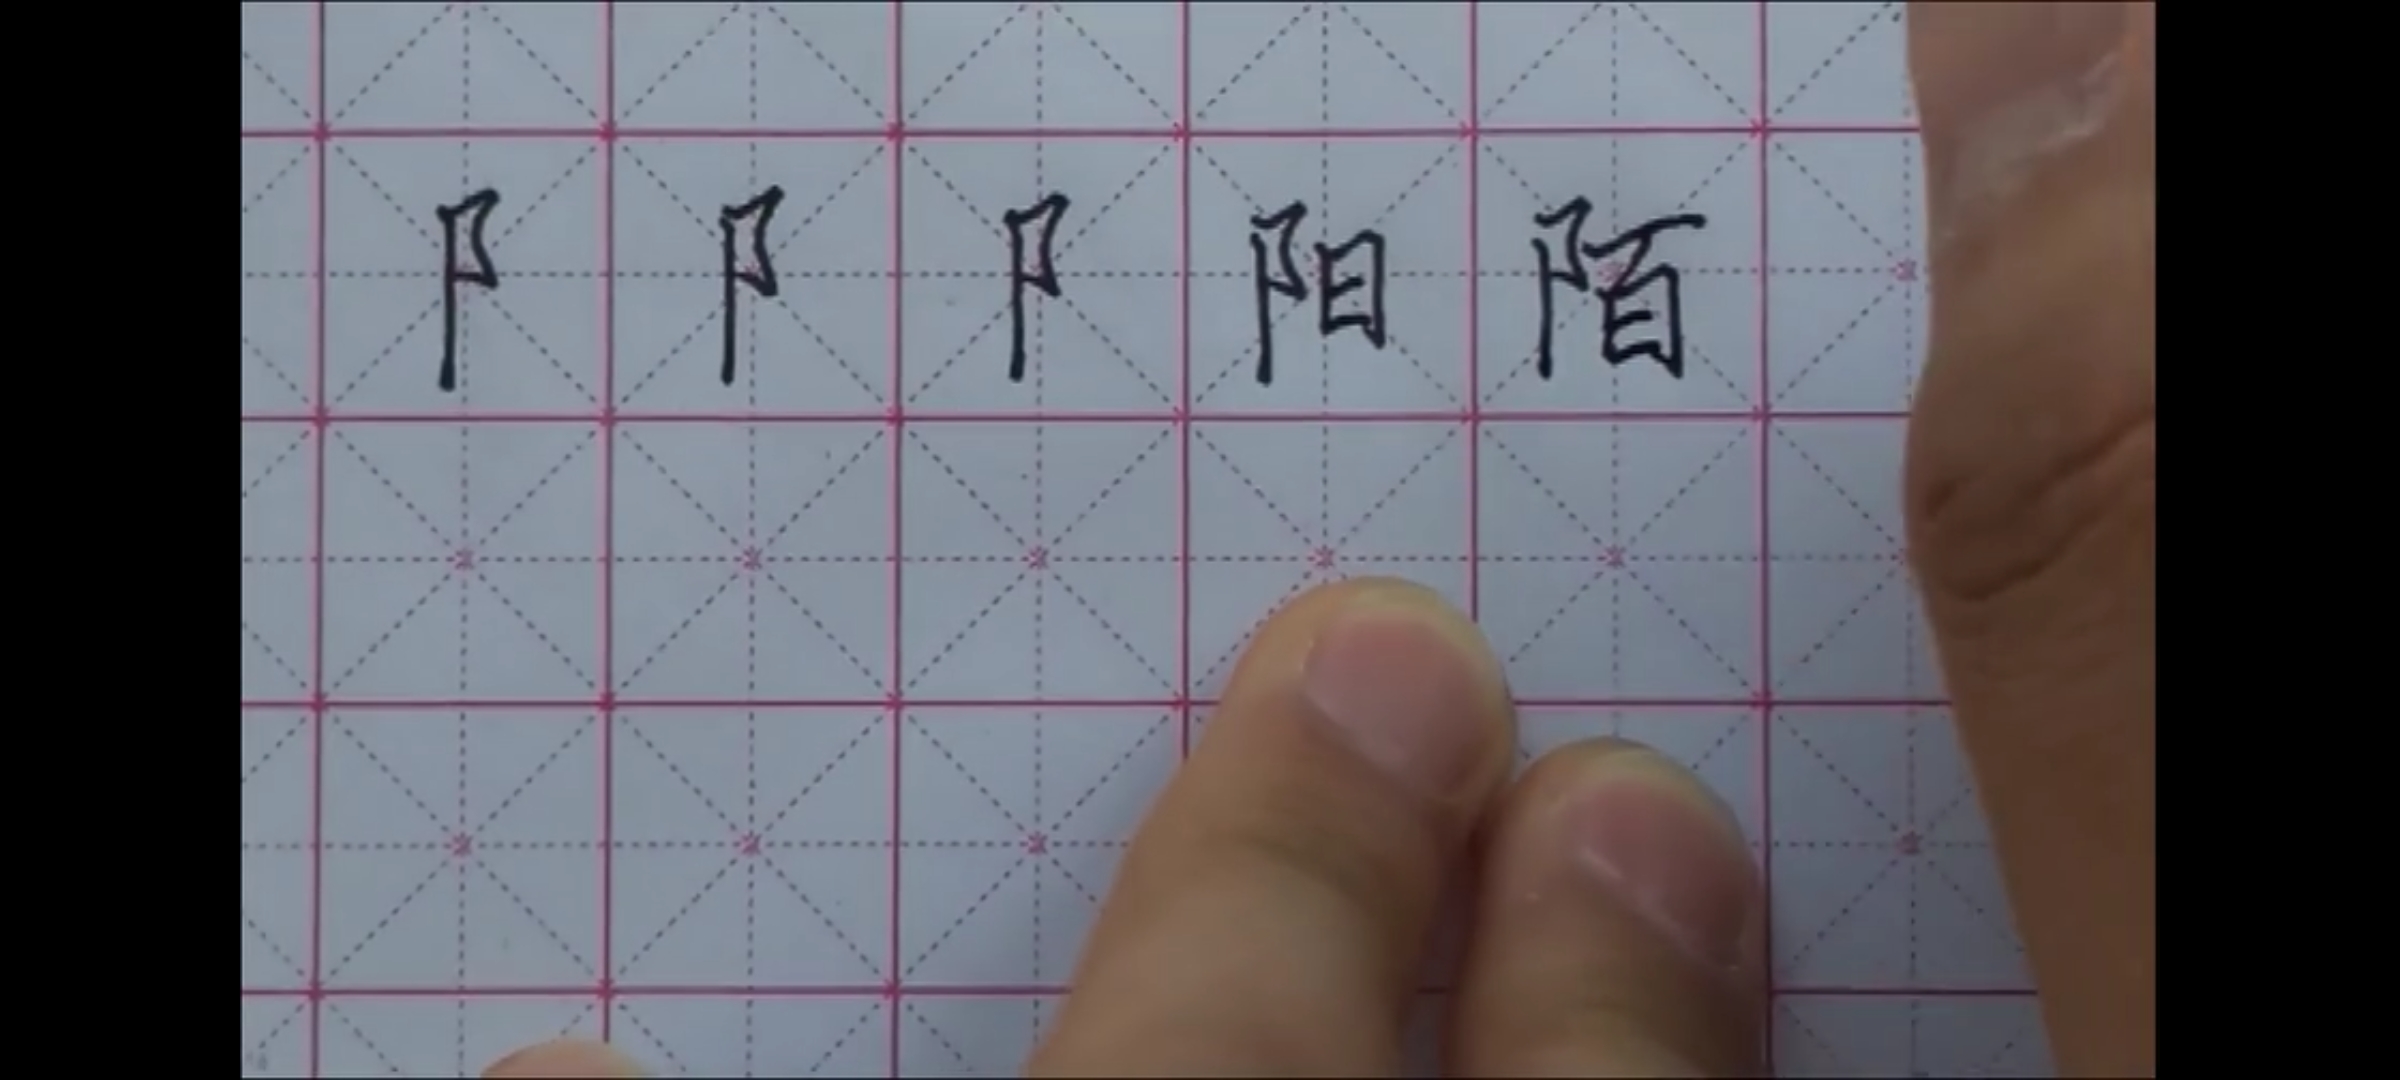 阝 阝 阝 阳 陌